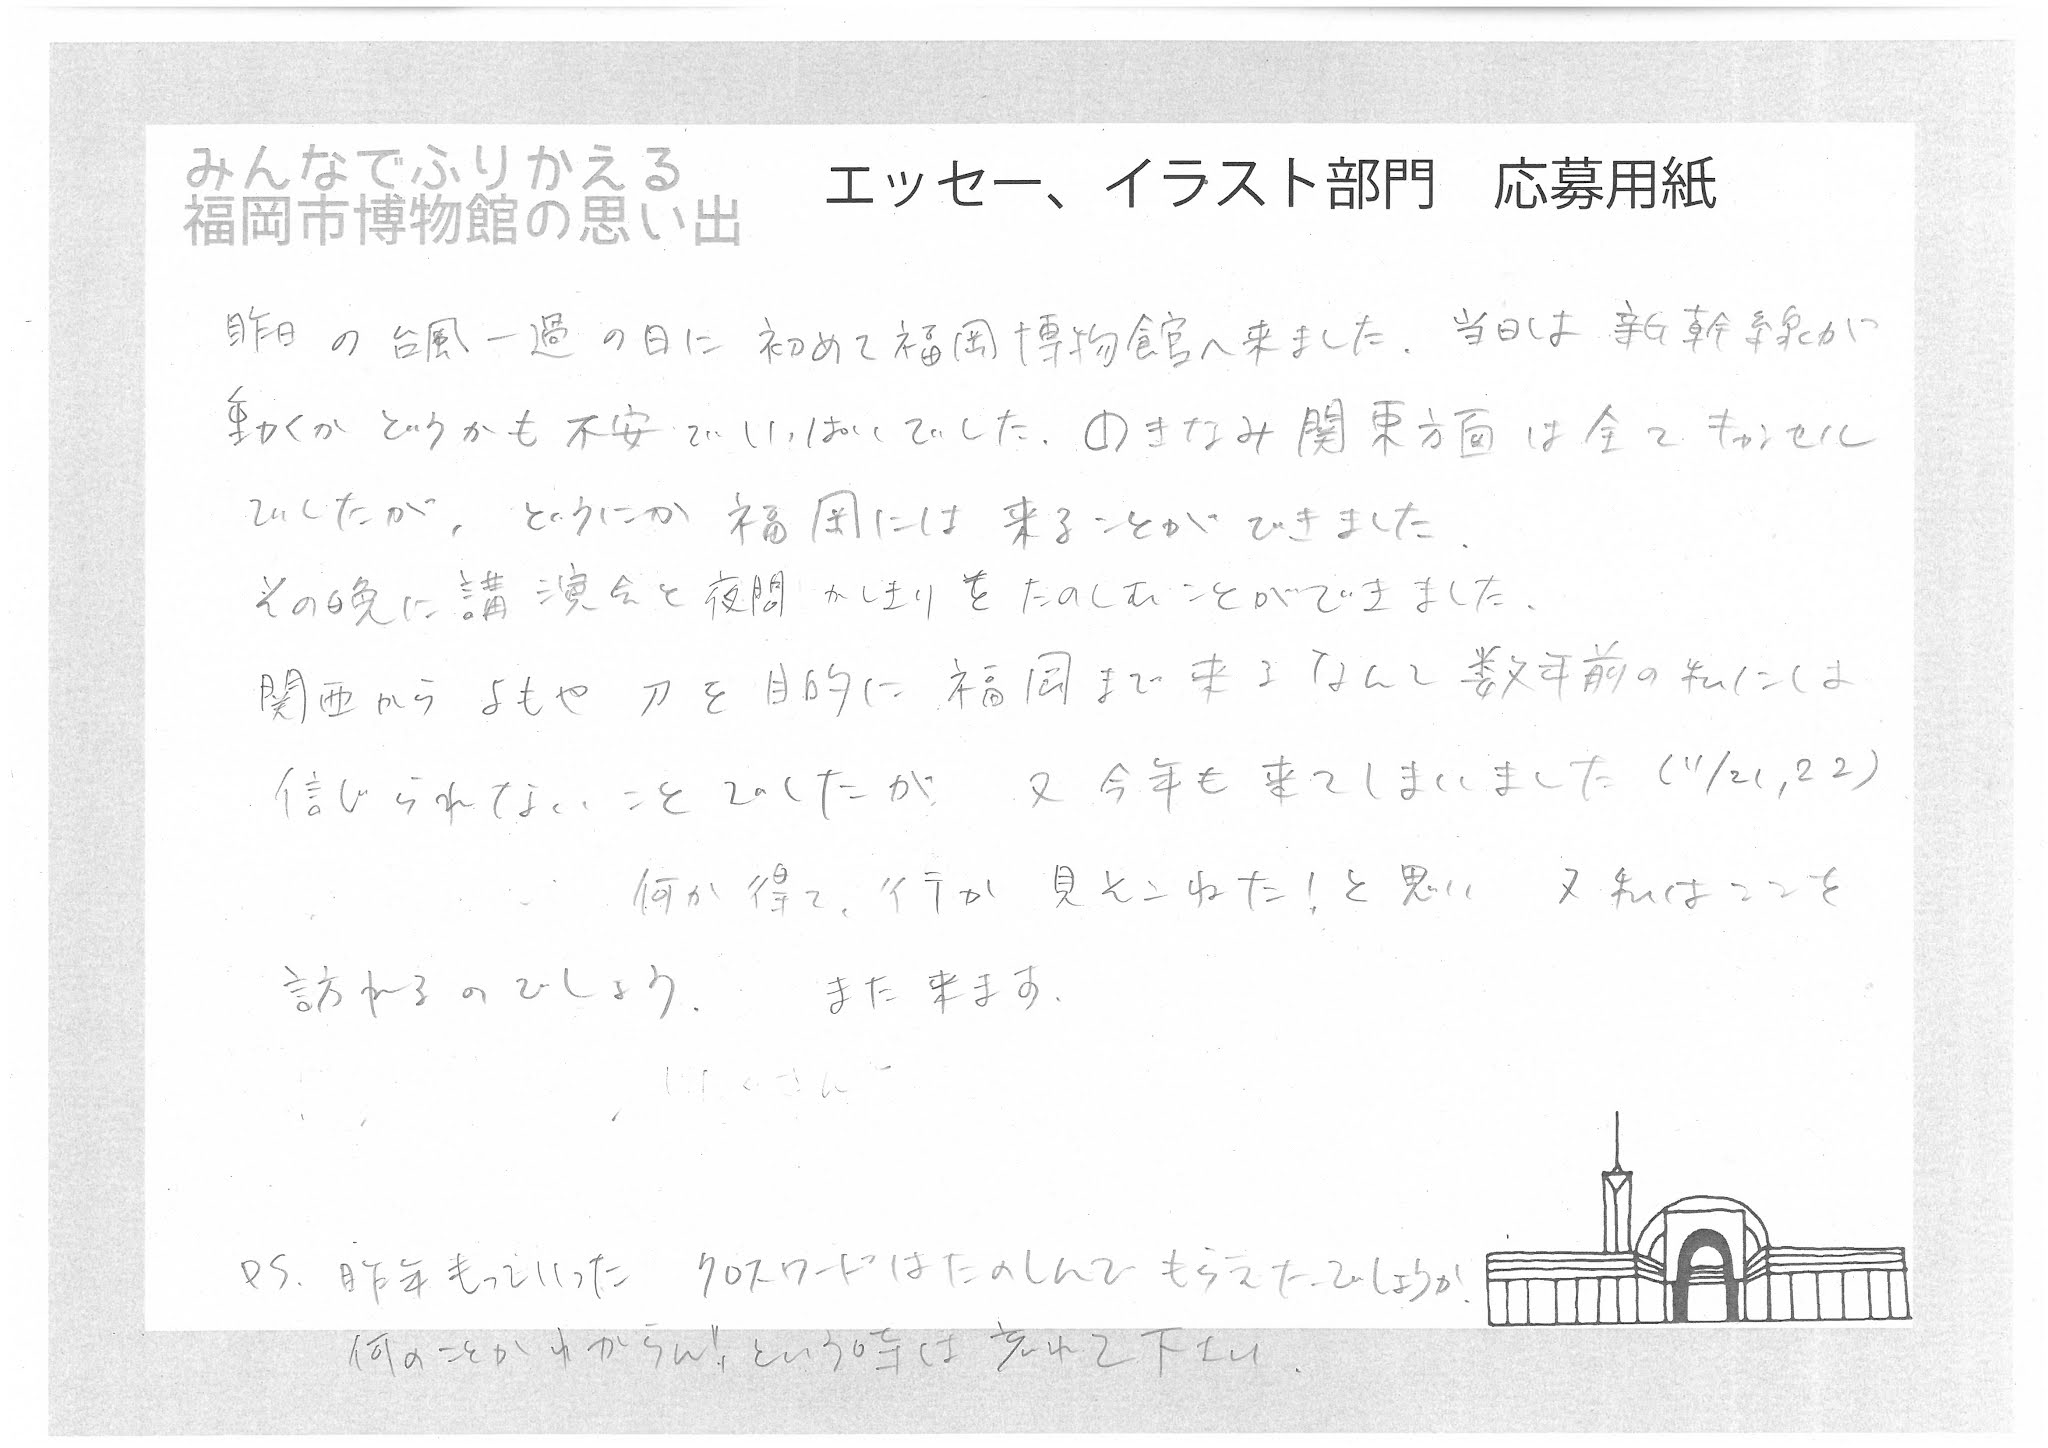 みんなでふりかえる
福岡市博物館の思い出
エッセー、イラスト部門　応募用紙
昨日の台風一過の日に初めて福岡博物館へ来ました. 当日は新幹線が
動くかどうかも不安でいっぱいでした. のきなみ関東方面は全てキャンセル
でしたが, どうにか福岡には来ることができました.
その晩に講演会と夜間かしきりをたのしむことができました.
関西からよもや刀を目的に福岡まで来るなんて数年前の私には
信じられないことでしたが 又今年も来てしまいました (11/21,22)
何か得て, 何か見そこねた!と思い 又私はここを
訪れるのでしょう. また来ます.
PS. 昨年もっていった クロスワードはたのしんでもらえたでしょうか.
何のことかわからん!! という時は忘れて下さい.